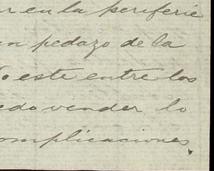 r en la periferie
un pedazo de la
este entre los
edo vender lo
omplicaciones.